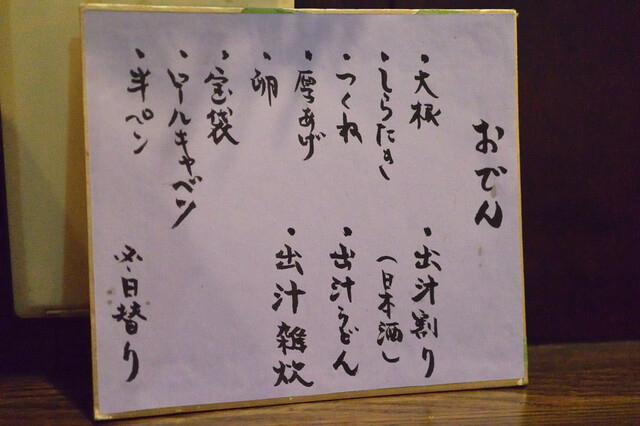 おでん
・大根
・しらたき
・つくね
・厚あげ
・卵
・宝袋
・ロールキャベツ
・半ペン
・出汁割り
(日本酒)
・出汁うどん
・出汁雑炊
※日替り